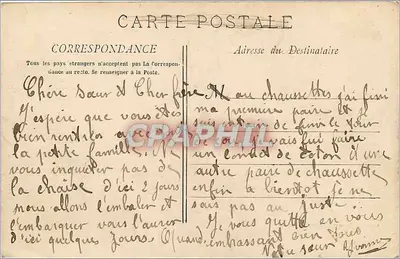 CARTE POSTALE
CORRESPONDANCE
Tous les pays étrangers n'acceptent pas La Correspon-
dance au recto. Se renseigner à la Poste.
Chère Sœur et Cher frère
J'espère que vous êtes
bien rentrés avec
la petite famille. Ne
vous inquiéter pas de
la chaise d'ici 2 jours
nous allons l'embaler et
l'embarquer vous l'aurez
d'ici quelques jours. Quand
Adresse du Destinataire
au chaussettes j'ai fini
ma première paire et je
suis de finir le
vais faire
un de coton d'une
autre paire de chaussette
enfin a bientot je ne
sais pas au juste.
Je vous quitte en vous
embrassant bien tous
Votre sœur Yvonne
CARPHIL